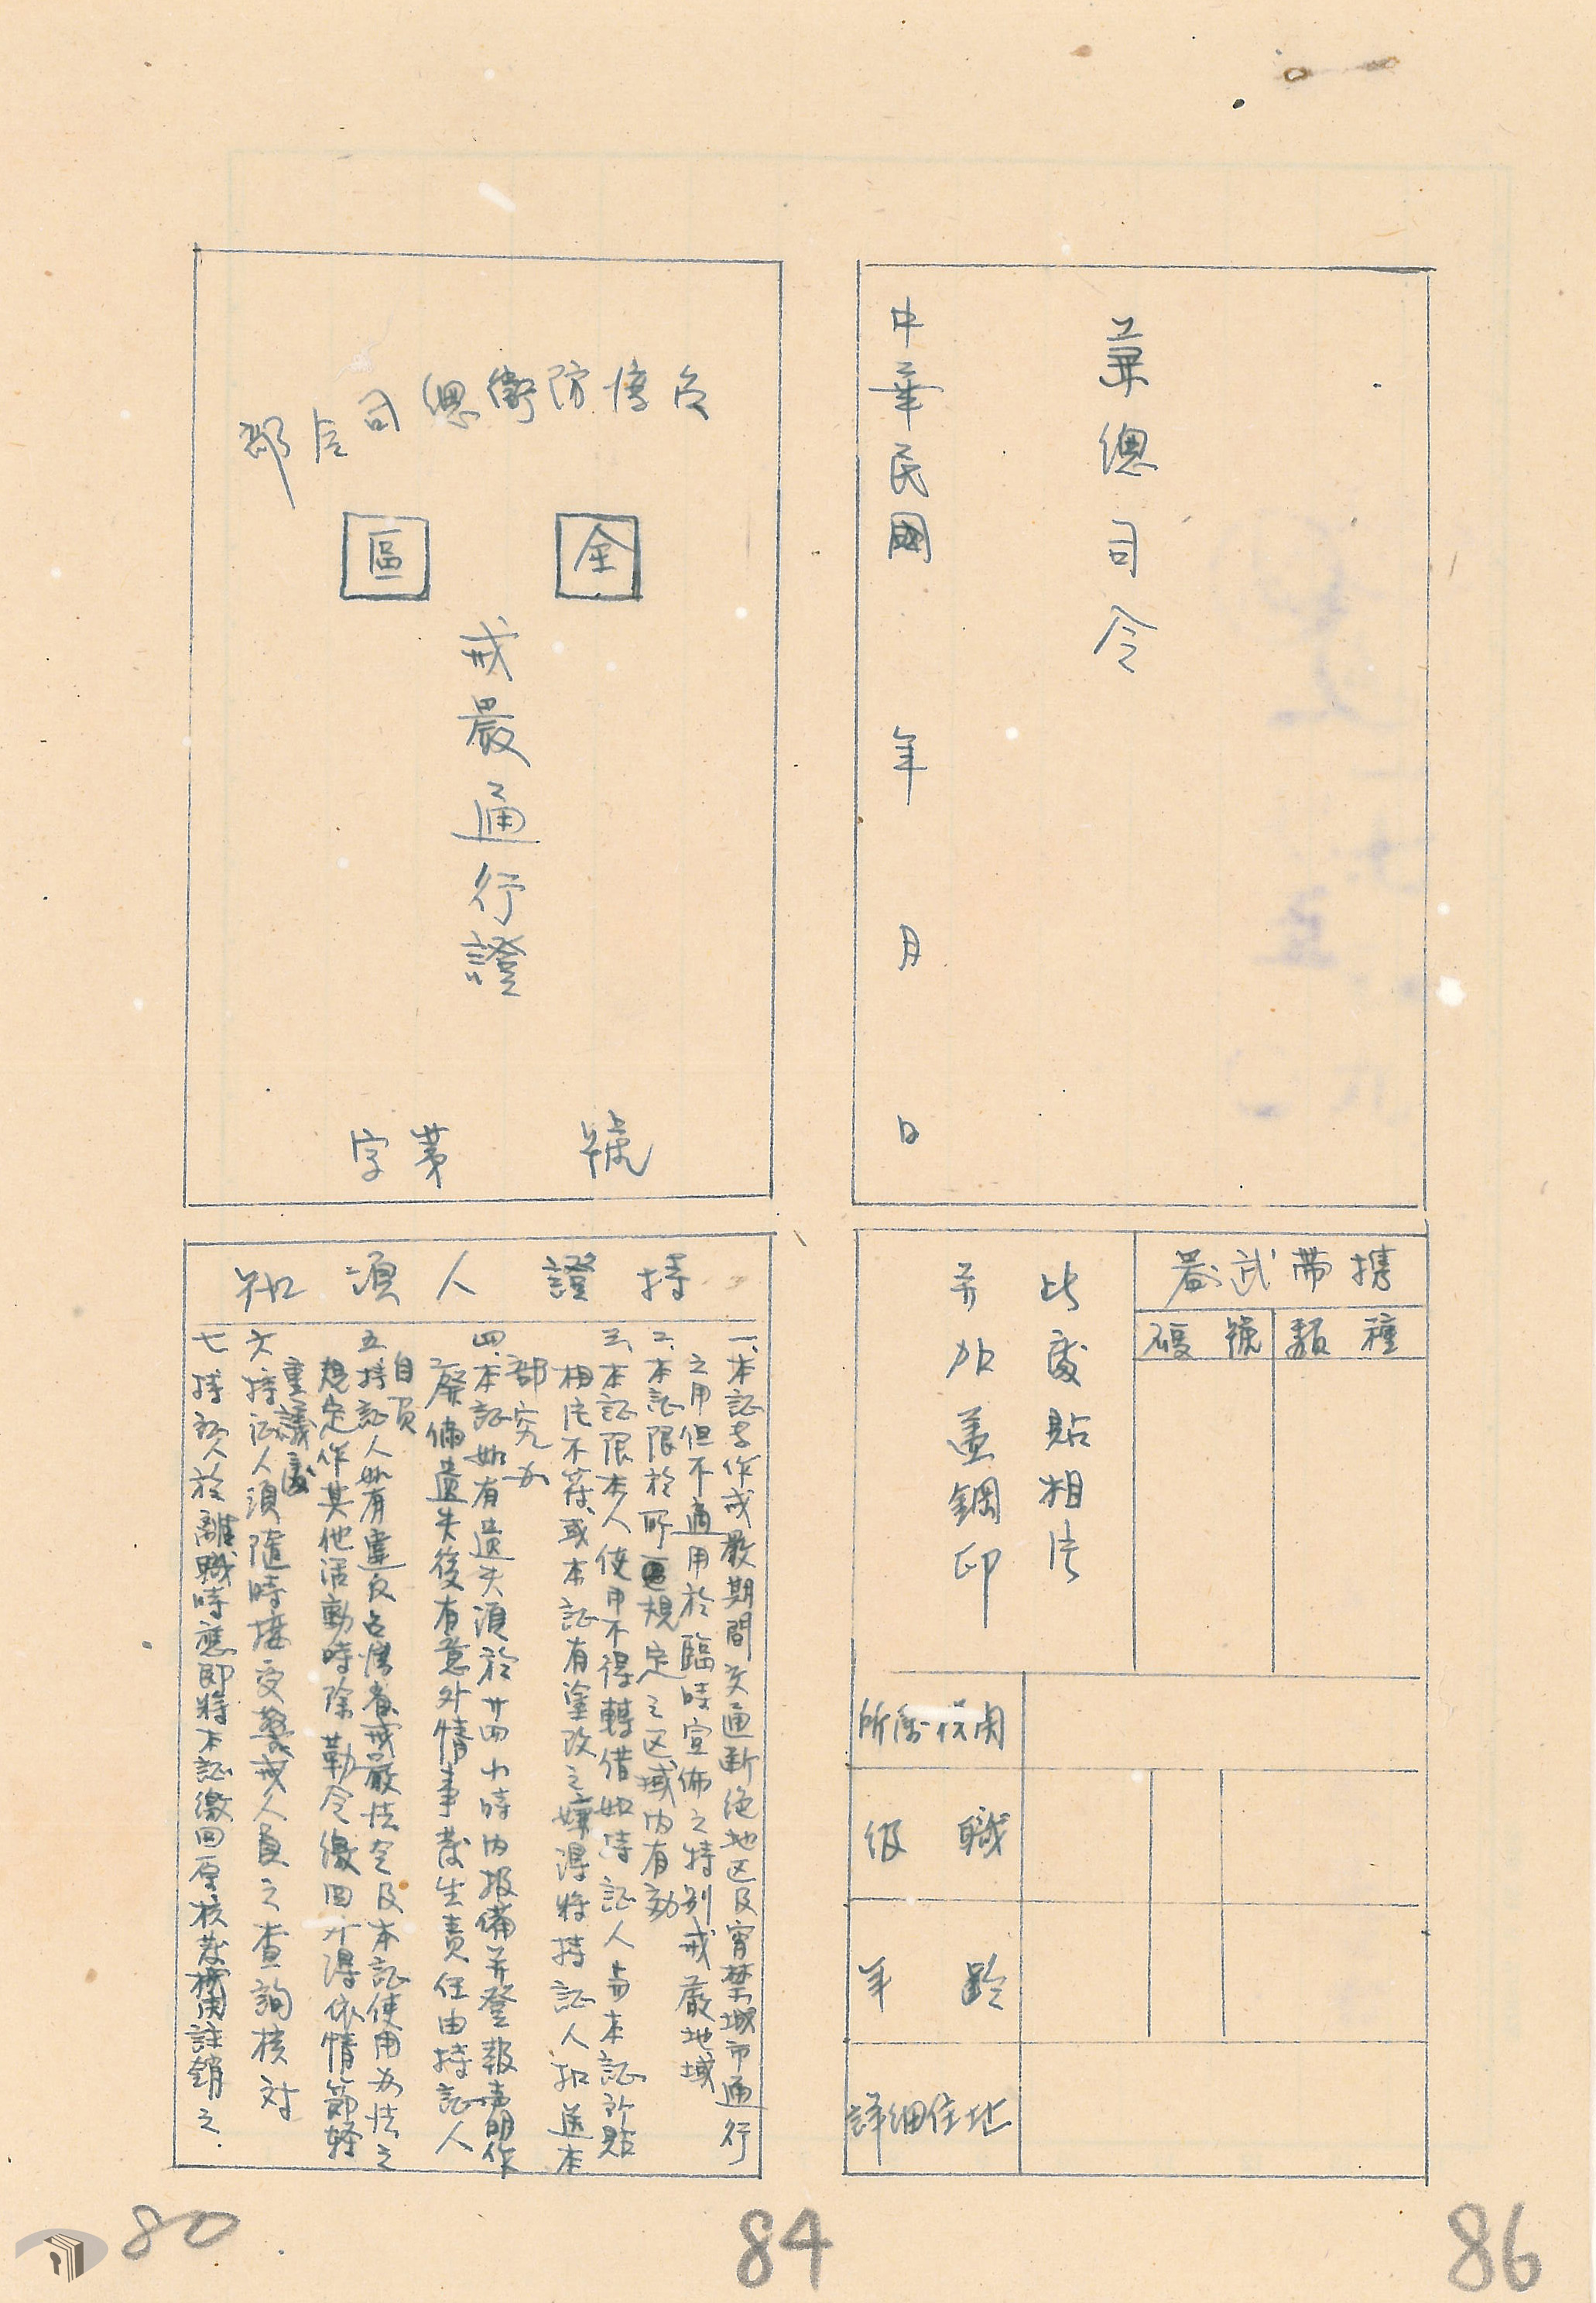 兼總司令
中華民國　年　月　日
台灣防衛總司令部
全區
戒嚴通行證
字第　號
携帶武器
種類
號碼
此處貼相片
并加蓋鋼印
所屬機関
職級
年齡
詳細住址
持證人須知
一、本証専作戒嚴期間交通断绝地区及宵禁城市通行
之用但不適用於臨時宣佈之特别戒嚴地域
二、本証限於所規定之区域内有効
三、本証限本人使用不得轉借如持証人与本証所貼
相片不符或本証有塗改之嫌得將持証人扣送本
部究办
四、本証如有遺失須於廿四小時内报備并登報声明作
廢倘遺失後有意外情事發生責任由持証人
自負
五、持証人如有違反台灣省戒嚴法令及本証使用办法之
規定作其他活動時除勒令繳回外得依情節輕
重議處
六、持証人須隨時接受警戒人員之查詢核对
七、持証人於離職時應即將本証繳回原核發機関註銷之.
80
84
86